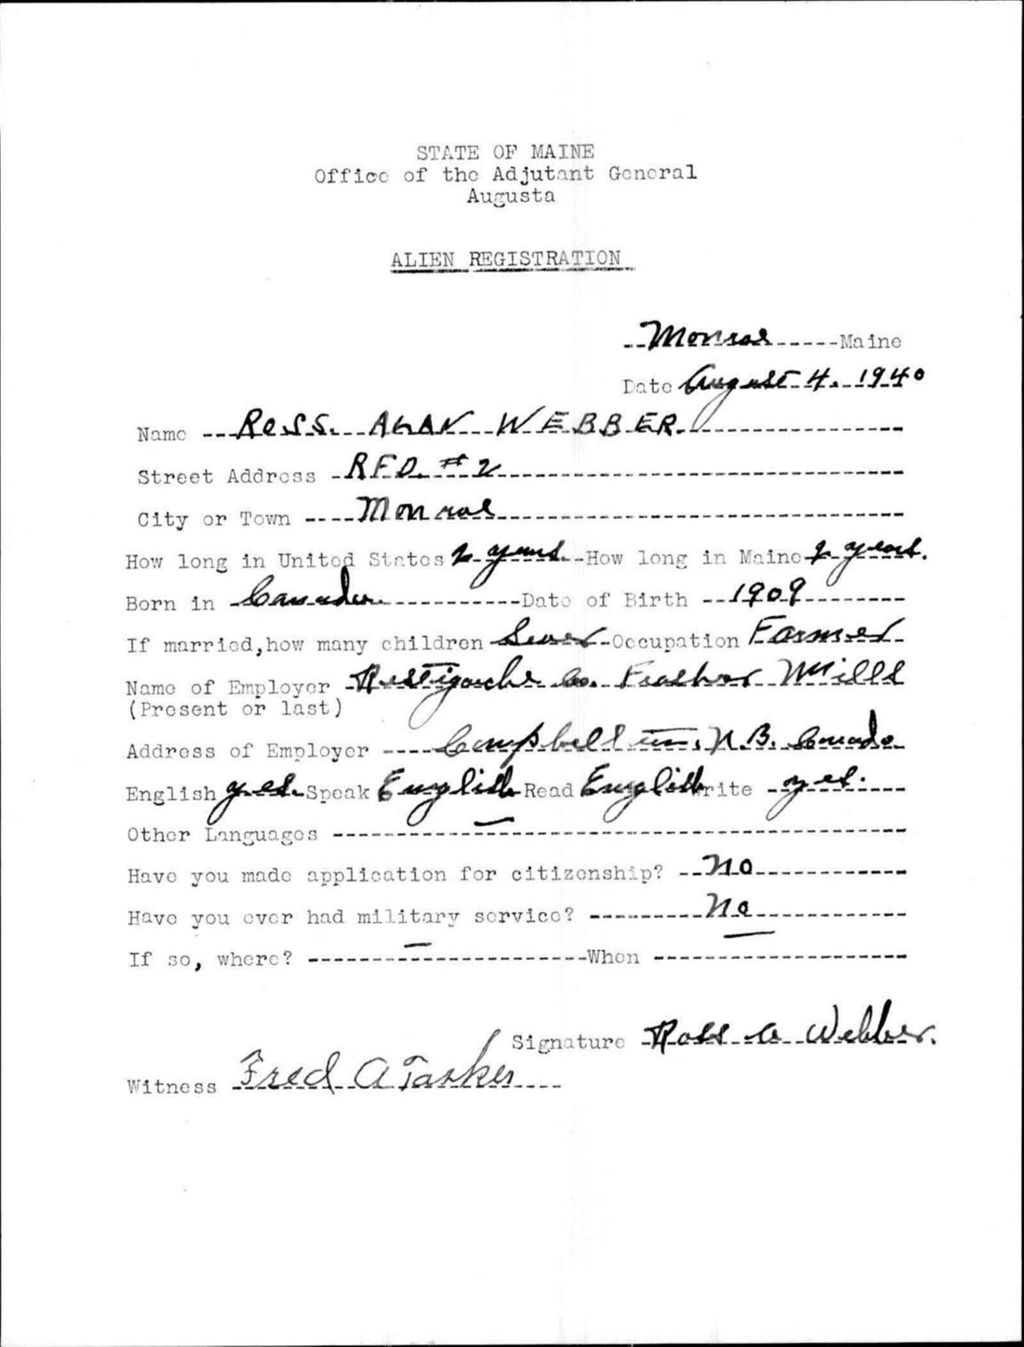 STATE OF MAINE
Office of the Adjutant General
Augusta
ALIEN REGISTRATION
Monroe Maine
Date August 4. 1940
Name Ross. Alan WEBBER.
Street Address R.F.D. #2
City or Town Monroe
How long in United States 2 years. How long in Maine 2 years.
Born in Canada. Date of Birth 1909
If married, how many children Seven Occupation Farmer
Name of Employer Restigouche Co. Mills
(Present or last)
Address of Employer Campbellton, N.B. Canada
English yes. Speak English Read English Write yes.
Other Languages —
Have you made application for citizenship? No
Have you ever had military service? No
If so, where? — When —
Signature Ross A Webber.
Witness Fred A Tasker